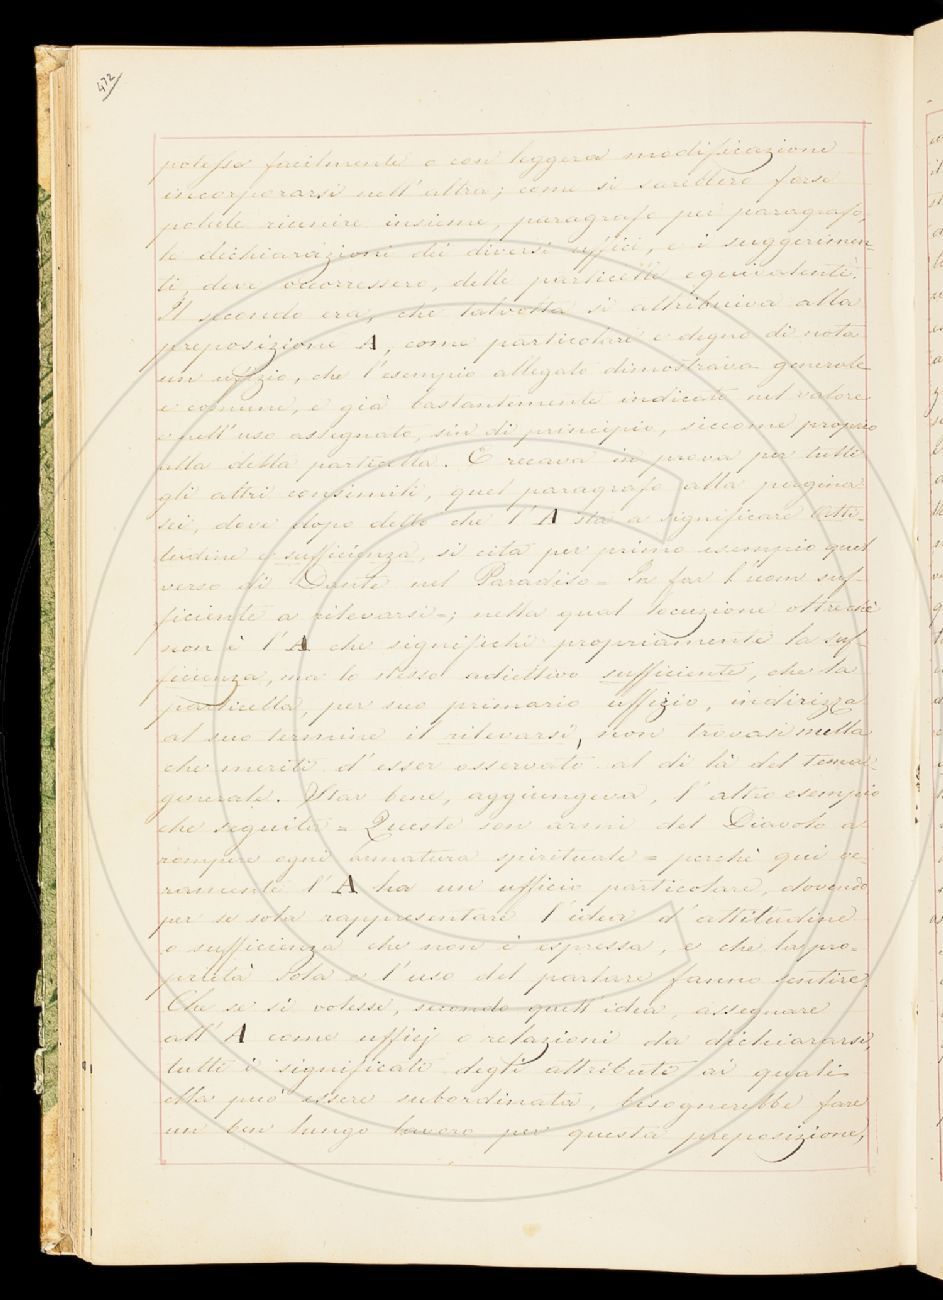 472
potesse facilmente o con leggera modificazione
incorporarsi nell'altra; come si sarebbero forse
potute riunire insieme, paragrafo per paragrafo,
le dichiarazioni dei diversi uffici, e i suggerimen-
ti, dove occorressero, delle particelle equivalenti.
Il secondo era, che talvolta si attribuiva alla
preposizione A, come particolare e degno di nota
un uffizio, che l'esempio allegato dimostrava generale
e comune, e già bastantemente indicato nel valore
e nell'uso assegnato, sin di principio, siccome proprio
alla detta particella. E recava in prova per tutti
gli altri consimili, quel paragrafo alla pagina
sei, dove dopo detto che l'A sta a significare Atti-
tudine e sufficienza, si cita per primo esempio quel
verso di Dante nel Paradiso = In far l'uom suf-
ficiente a rilevarsi =; nella qual locuzione oltrechè
non è l'A che significhi propriamente la suf-
ficienza, ma lo stesso adiettivo sufficiente, che la
particella, per suo primario uffizio, indirizza
al suo termine il rilevarsi, non trovasi nulla
che meriti d'esser osservato al di là del tema
generale. Star bene, aggiungeva, l'altro esempio
che seguita = Queste son armi del Diavolo a
rompere ogni armatura spirituale = perchè qui ve-
ramente l'A ha un ufficio particolare, dovendo
per se sola rappresentare l'idea d'attitudine
o sufficienza che non è espressa, e che la pro-
prietà sola e l'uso del parlare fanno sentire.
Che se si volesse, secondo quest'idea, assegnare
all'A come ufficj o relazioni da dichiararsi,
tutti i significati degli attributi ai quali
ella può essere subordinata, bisognerebbe fare
un ben lungo lavoro per questa preposizione,